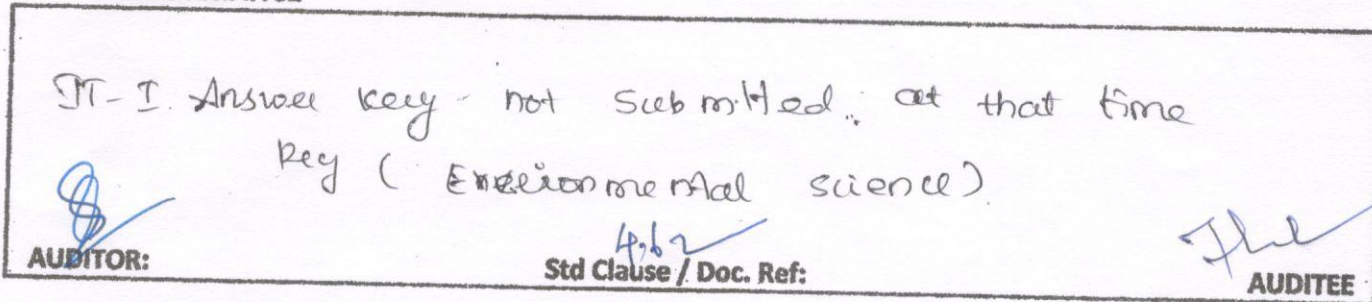 IT-I Answer key - not submitted, at that time
key (Environmental science)
4.6.2
AUDITOR:
Std Clause / Doc. Ref:
AUDITEE